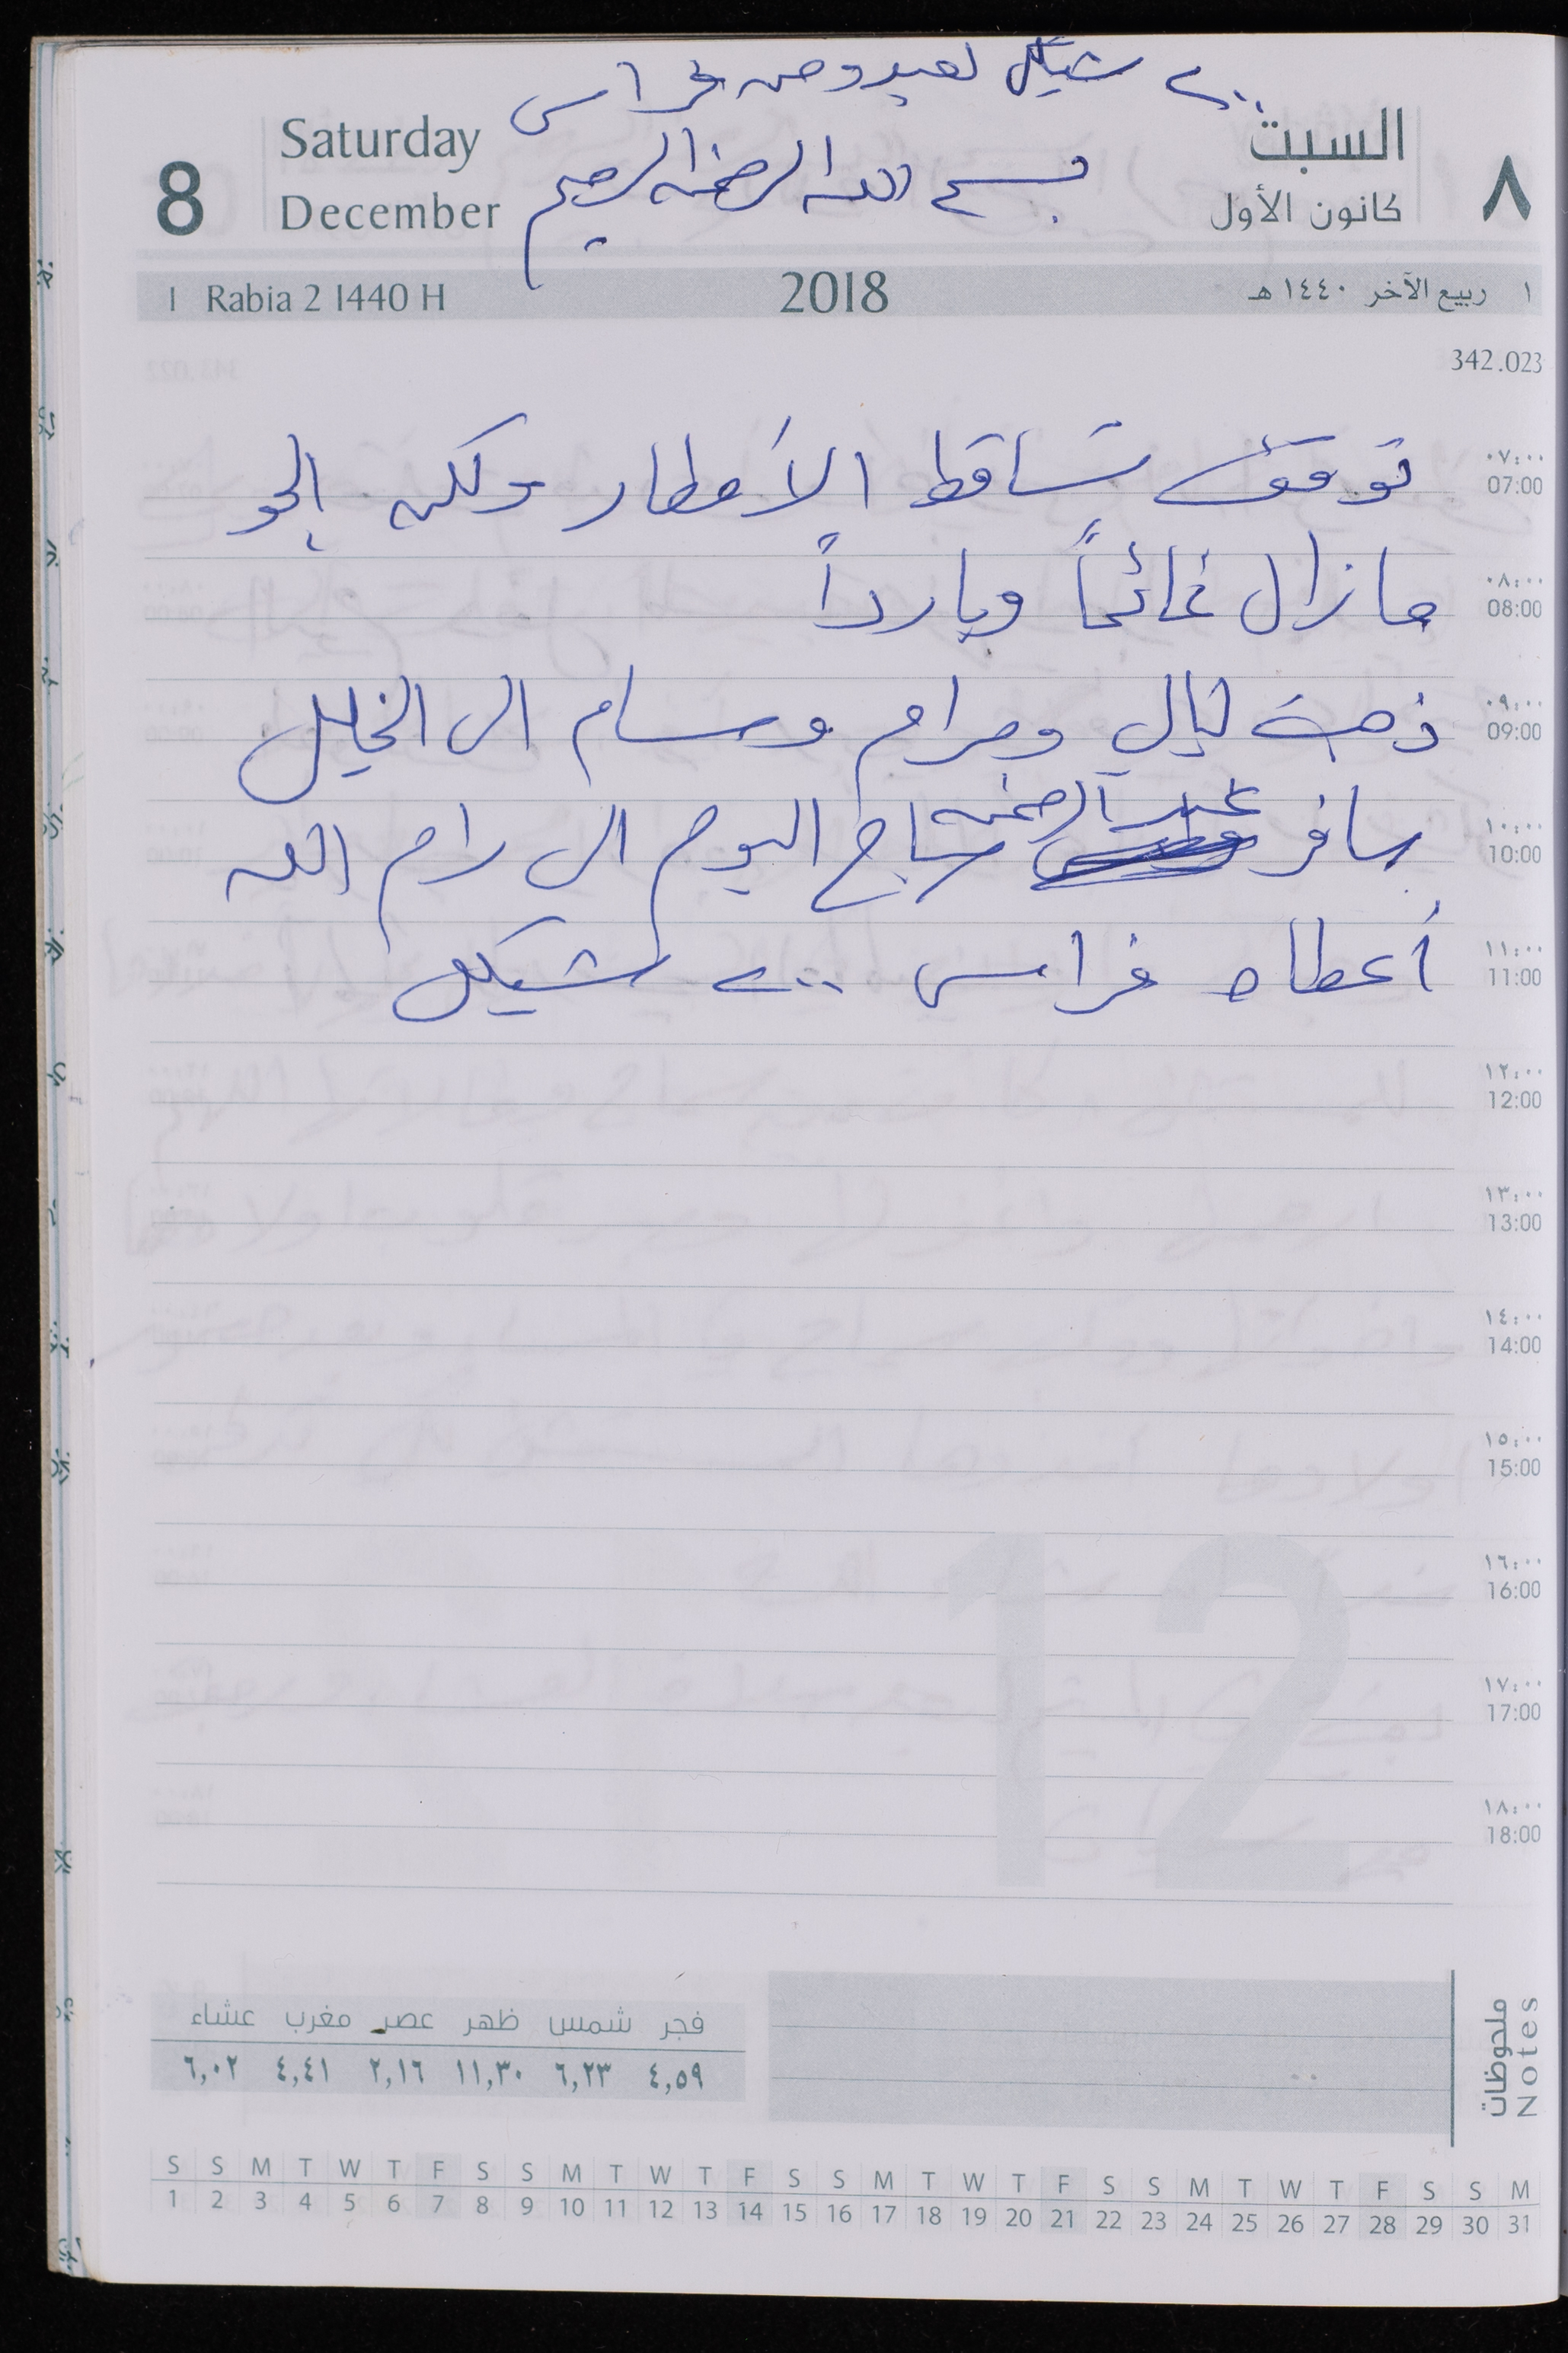 ٢٠٠ شيكل لعبد ومن فراس
Saturday
السبت
8
٨
بسم الله الرحمن الرحيم
December
كانون الأول
1 Rabia 2 1440 H
2018
١ ربيع الآخر ١٤٤٠ هـ
342.023
توقف تساقط الأمطار ولكن الجو
٠٧:٠٠
07:00
ما زال غائماً وبارداً
٠٨:٠٠
08:00
ذهبت ليالي ومرام وسام الى الخليل
٠٩:٠٠
09:00
سافر عبد الرحمن صباح اليوم الى رام الله
١٠:٠٠
10:00
أعطاه فراس ٢٠٠ شيكل
١١:٠٠
11:00
١٢:٠٠
12:00
١٣:٠٠
13:00
١٤:٠٠
14:00
١٥:٠٠
15:00
١٦:٠٠
16:00
١٧:٠٠
17:00
١٨:٠٠
18:00
12
فجر شمس ظهر عصر مغرب عشاء
٤,٥٩ ٦,٢٣ ١١,٣٠ ٢,١٦ ٤,٤١ ٦,٠٢
ملحوظات
Notes
S S M T W T F S S M T W T F S S M T W T F S S M T W T F S S M
1 2 3 4 5 6 7 8 9 10 11 12 13 14 15 16 17 18 19 20 21 22 23 24 25 26 27 28 29 30 31